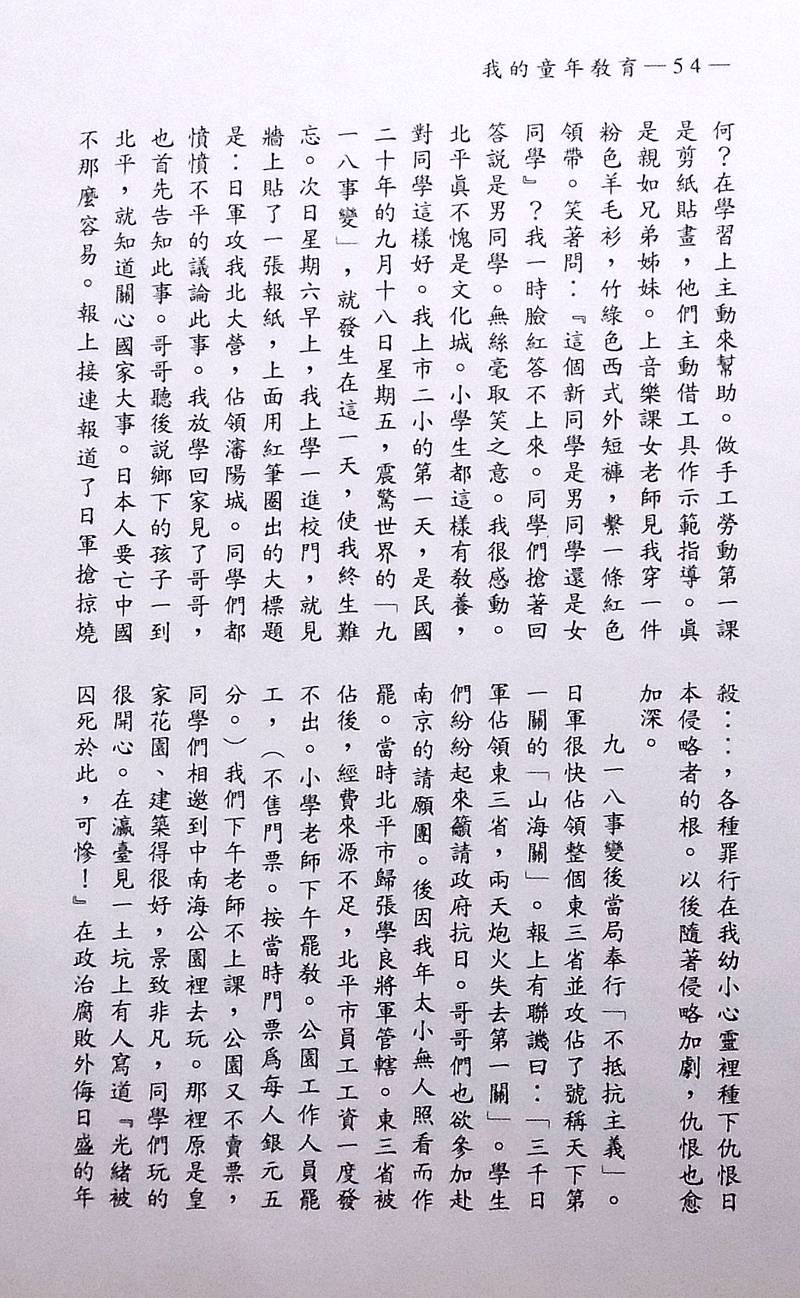 我的童年教育—54—
何？在學習上主動來幫助。做手工勞動第一課
是剪紙貼畫，他們主動借工具作示範指導。眞
是親如兄弟姊妹。上音樂課女老師見我穿一件
粉色羊毛衫，竹綠色西式外短褲，繫一條紅色
領帶。笑著問：『這個新同學是男同學還是女
同學』？我一時臉紅答不上來。同學們搶著回
答説是男同學。無絲毫取笑之意。我很感動。
北平眞不愧是文化城。小學生都這樣有教養，
對同學這樣好。我上市二小的第一天，是民國
二十年的九月十八日星期五，震驚世界的「九
一八事變」，就發生在這一天，使我終生難
忘。次日星期六早上，我上學一進校門，就見
牆上貼了一張報紙，上面用紅筆圈出的大標題
是：日軍攻我北大營，佔領瀋陽城。同學們都
憤憤不平的議論此事。我放學回家見了哥哥，
也首先告知此事。哥哥聽後説鄉下的孩子一到
北平，就知道關心國家大事。日本人要亡中國
不那麼容易。報上接連報道了日軍搶掠燒
殺：：，各種罪行在我幼小心靈裡種下仇恨日
本侵略者的根。以後隨著侵略加劇，仇恨也愈
加深。
九一八事變後當局奉行「不抵抗主義」。
日軍很快佔領整個東三省並攻佔了號稱天下第
一關的「山海關」。報上有聯譏曰：「三千日
軍佔領東三省，兩天炮火失去第一關」。學生
們紛紛起來籲請政府抗日。哥哥們也欲參加赴
南京的請願團。後因我年太小無人照看而作
罷。當時北平市歸張學良將軍管轄。東三省被
佔後，經費來源不足，北平市員工工資一度發
不出。小學老師下午罷教。公園工作人員罷
工，（不售門票。按當時門票爲每人銀元五
分。）我們下午老師不上課，公園又不賣票，
同學們相邀到中南海公園裡去玩。那裡原是皇
家花園、建築得很好，景致非凡，同學們玩的
很開心。在瀛臺見一土坑上有人寫道『光緒被
囚死於此，可慘！』在政治腐敗外侮日盛的年